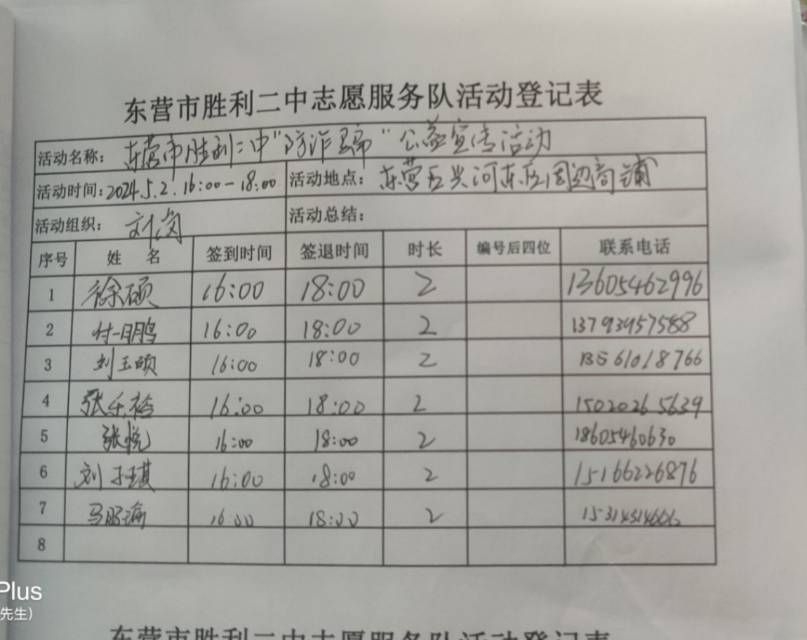 东营市胜利二中志愿服务队活动登记表
活动名称： 东营市胜利二中"防诈骗"公益宣传活动
活动时间：2024.5.2.16:00-18:00 活动地点： 东营区兴河东区周边商铺
活动组织： 刘岗 活动总结：
序号 姓 名 签到时间 签退时间 时长 编号后四位 联系电话
1 徐硕 16:00 18:00 2 13605462996
2 付明鹏 16:00 18:00 2 13793957588
3 刘玉硕 16:00 18:00 2 13561018766
4 张千裕 16:00 18:00 2 15020265639
5 张悦 16:00 18:00 2 18605460630
6 刘子琪 16:00 18:00 2 15166226876
7 16:00 18:00 2
8
Plus
先生）
东营市胜利二中志愿服务队活动登记表